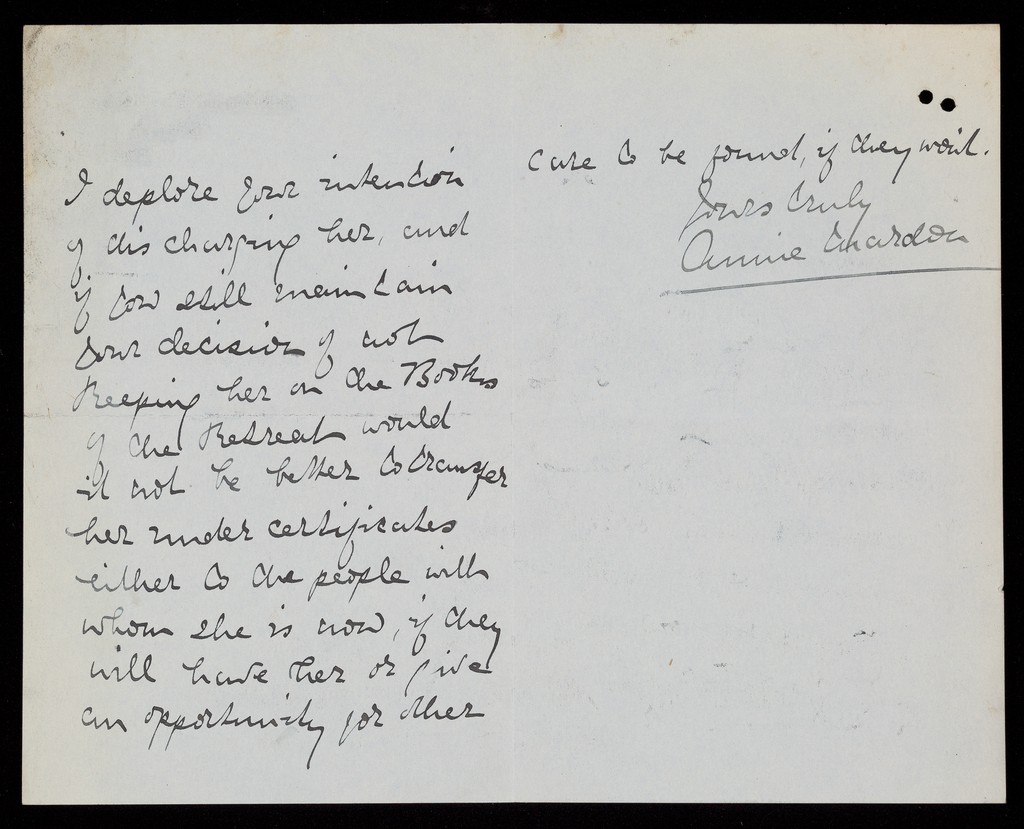 I deplore your intention
of discharging her, and
if you still maintain
your decision of not
Keeping her on the Books
of the Retreat would
it not be better to transfer
her under certificates
either to the people with
whom she is now, if they
will have her or give
an opportunity for other
care to be found, if they won't.
Yours truly
Annie